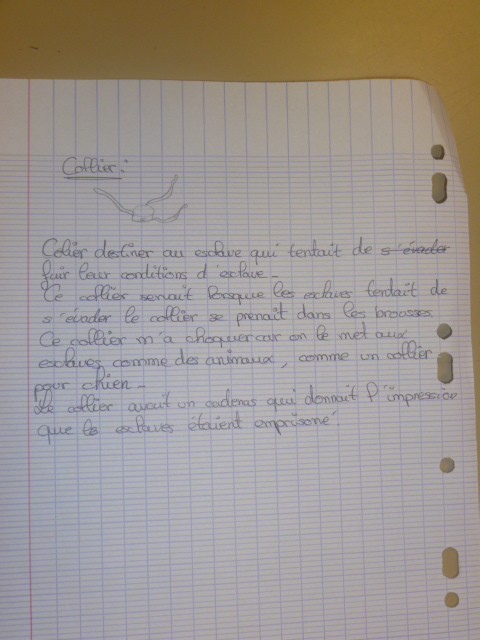 Collier :
Colier destiner au esclave qui tentait de s'évader
fuir leur conditions d'esclave.
Ce collier servait lorsque les esclaves tentait de
s'évader le collier se prenait dans les brousses
Ce collier m'a choquer car on le met aux
esclaves comme des animaux, comme un collier
pour chien.
Le collier avait un cadenas qui donnait l'impression
que les esclaves étaient emprisoné